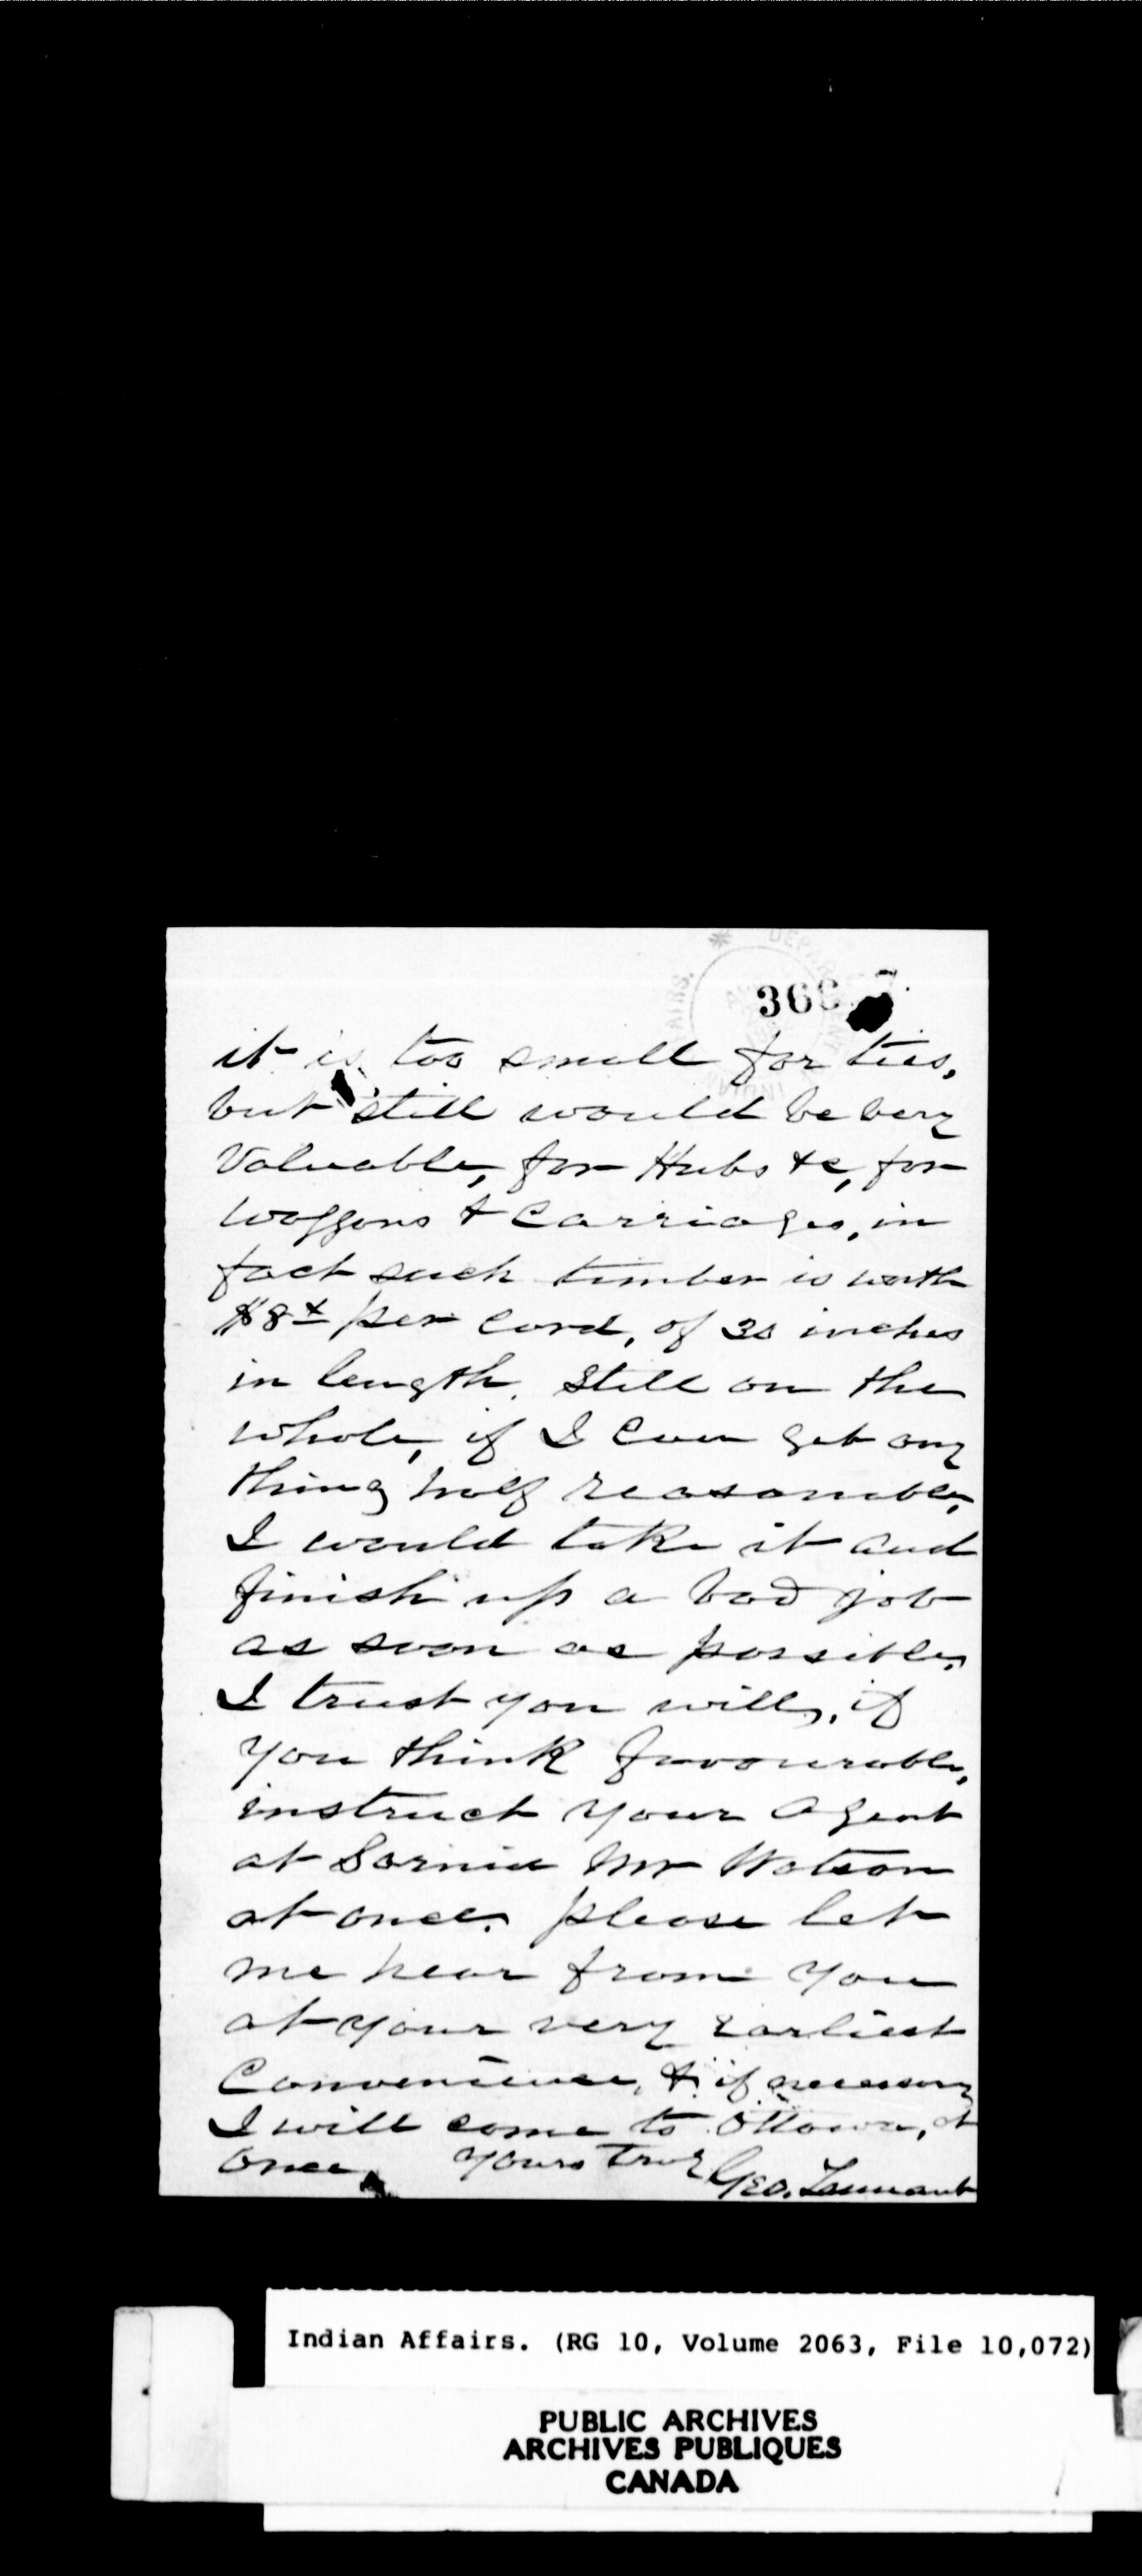 DEPARTMENT INDIAN AFFAIRS.
366
it is too small for ties,
but still would be very
Valuable, for Hubs &c, for
Waggons & Carriages, in
fact such timber is worth
$8 per Cord, of 30 inches
in length. Still on the
whole, if I can get any
thing half reasonable,
I would take it and
finish up a bad job
as soon as possible.
I trust you will, if
you think favourable,
instruct your Agent
at Sarnia Mr Watson
at once. please let
me hear from you
at your very earliest
Convenience, & if necessary
I will come to Ottawa, at
once, Yours truly Geo.
Indian Affairs. (RG 10, Volume 2063, File 10,072)
PUBLIC ARCHIVES
ARCHIVES PUBLIQUES
CANADA